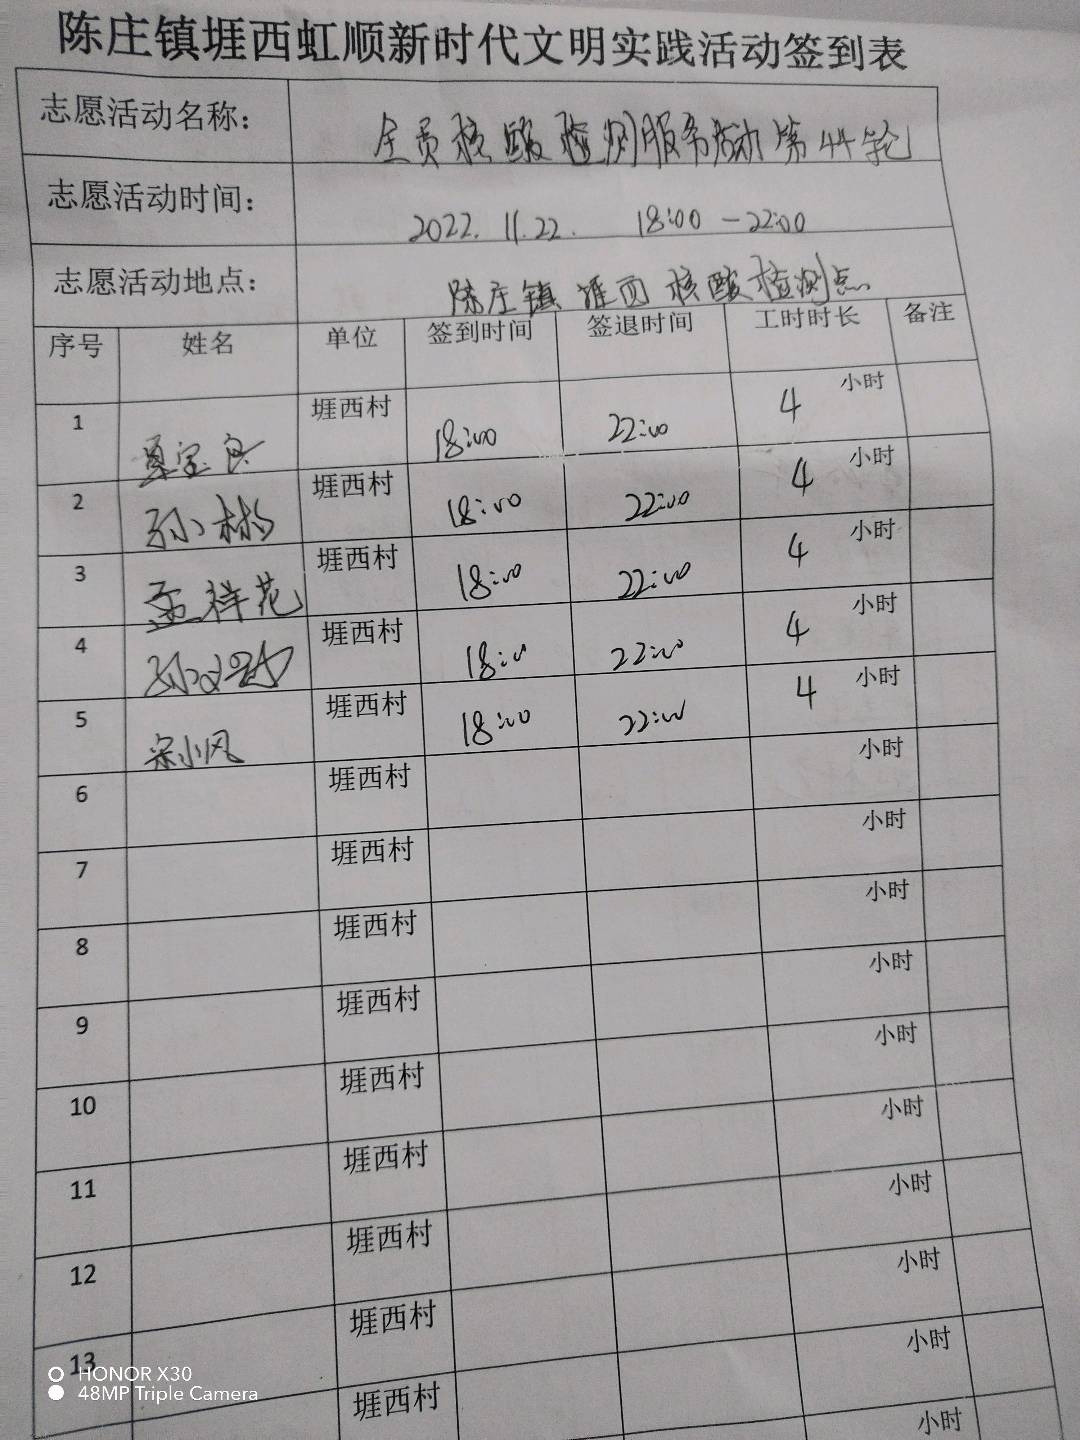 陈庄镇堐西虹顺新时代文明实践活动签到表
志愿活动名称： 全员核酸检测服务活动第44轮
志愿活动时间： 2022.11.22. 18:00-22:00
志愿活动地点： 陈庄镇堐西核酸检测点
序号 姓名 单位 签到时间 签退时间 工时时长 备注
1 堐西村 18:00 22:00 4 小时
2 孙彬 堐西村 18:00 22:00 4 小时
3 孟祥花 堐西村 18:00 22:00 4 小时
4 堐西村 18:00 22:00 4 小时
5 宋小风 堐西村 18:00 22:00 4 小时
6 堐西村 小时
7 堐西村 小时
8 堐西村 小时
9 堐西村 小时
10 堐西村 小时
11 堐西村 小时
12 堐西村 小时
13 堐西村 小时
堐西村 小时
HONOR X30
48MP Triple Camera